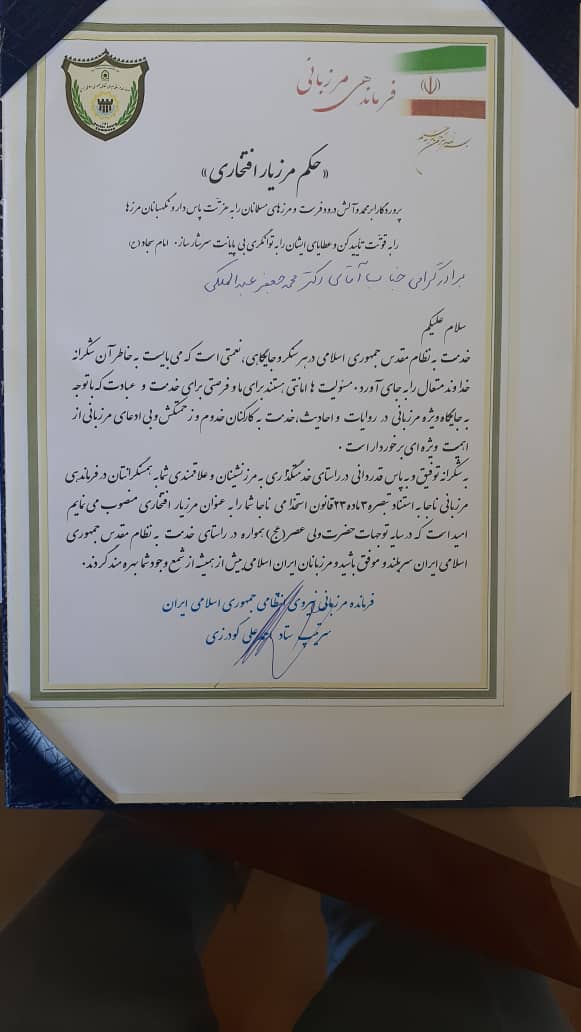 فرماندهی مرزبانی
بسم الله الرحمن الرحیم
«حکم مرزیار افتخاری»
پروردگارا بر محمد و آلش درود فرست و مرزهای مسلمانان را به عزتت پاس دار و نگهبانان مرزها
را به قوتت تأیید کن و عطایای ایشان را به توانگری بی پایانت سرشار ساز. امام سجاد (ع)
برادر گرامی جناب آقای دکتر محمد جعفر عبدالملکی
سلام علیکم
خدمت به نظام مقدس جمهوری اسلامی در هر سنگر و جایگاهی، نعمتی است که می بایست به خاطر آن شکرانه
خداوند متعال را به جای آورد. مسئولیت ها امانتی هستند برای ما و فرصتی برای خدمت و عبادت که با توجه
به جایگاه ویژه مرزبانی در روایات و احادیث، خدمت به کارکنان خدوم و زحمتکش و بی ادعای مرزبانی از
اهمیت ویژه ای برخوردار است.
به شکرانه توفیق و به پاس قدردانی در راستای خدمتگذاری به مرزنشینان و علاقمندی شما به همسنگرانتان در فرماندهی
مرزبانی ناجا به استناد تبصره ۳ ماده ۲۳ قانون استخدامی ناجا شما را به عنوان مرزیار افتخاری منصوب می نمایم
امید است که در سایه توجهات حضرت ولی عصر (عج) همواره در راستای خدمت به نظام مقدس جمهوری
اسلامی ایران سربلند و موفق باشید و مرزبانان ایران اسلامی بیش از همیشه از شمع وجود شما بهره مند گردند.
فرمانده مرزبانی نیروی انتظامی جمهوری اسلامی ایران
سرتیپ ستاد علی گودرزی